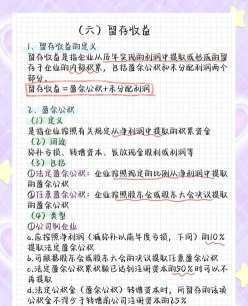 (六) 留存收益
1、留存收益的定义
留存收益是指企业从历年实现的利润中提取或形成的留
存于企业的内部积累，包括盈余公积和未分配利润两个
部分。
留存收益=盈余公积+未分配利润
2、盈余公积
(1) 定义
是指企业按照有关规定从净利润中提取的积累资金
(2) 用途
弥补亏损、转增资本、发放现金股利或利润等
(3) 包括
①法定盈余公积：企业按照规定的比例从净利润中提取
的盈余公积
②任意盈余公积：企业按照股东会或股东大会决议提取
的盈余公积
(4) 类型
①公司制企业
a.应按照净利润（减弥补以前年度亏损，下同）的10%
提取法定盈余公积
b.可根据股东会或股东大会的决议提取任意盈余公积
c.法定盈余公积累计额已达到注册资本的50%时可以不
再提取
d.法定公积金（盈余公积）转增资本时，所留存的该项
公积金不得少于转增前公司注册资本的25%